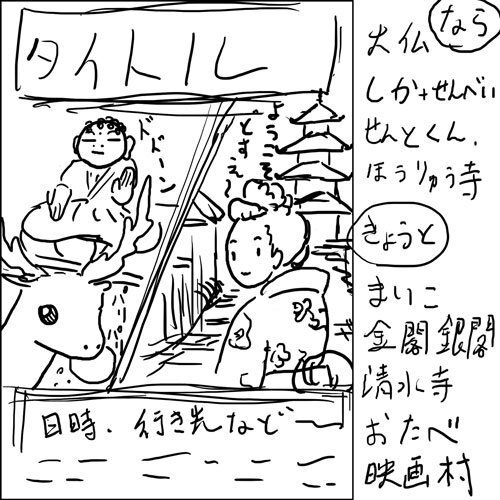 タイトル
ドドーン
ようこそ
とすえ〜
日時、行き先など
なら
大仏
しか+せんべい
せんとくん、
ほうりゅう寺
きょうと
まいこ
金閣 銀閣
清水寺
おたべ
映画村